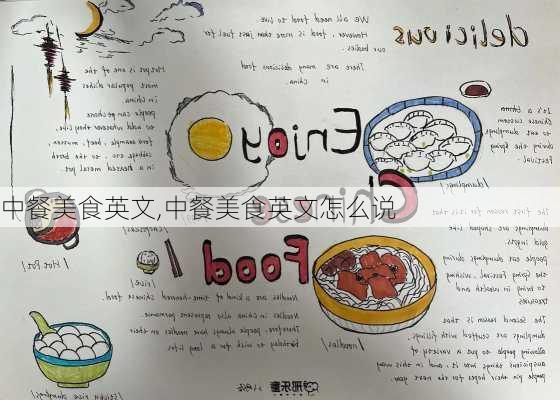 delicious
We all need food to live.
However, food is more than just fuel for
our bodies.
There are many delicious food
in China.
It's a
Chinese custom
to eat dumplings
during the Spring
Festival.
Enjoy
/dumplings/
Hotpot is one of the
most popular dishes
in China
people can choose
to add whatever they like,
for example, beef,
cabbage, etc, to the broth
in a heated metal pot
中餐美食英文,中餐美食英文怎么说
Chinese
Food
The first reason is that
dumplings are shaped like
gold ingots
People eat dumplings during
the Spring Festival, wishing
to bring in wealth and
treasures
The second reason is that
dumplings are stuffed with fillings,
allowing people to put a variety of
things into it, and in this way
people pin their hopes for the new year.
/Hot Pot/
/rice/
/noodles/
Noodles are a kind of time-honored chinese food.
Noodles in China also represent
Therefore, people always have noodles on their
birthday to wish for a long life